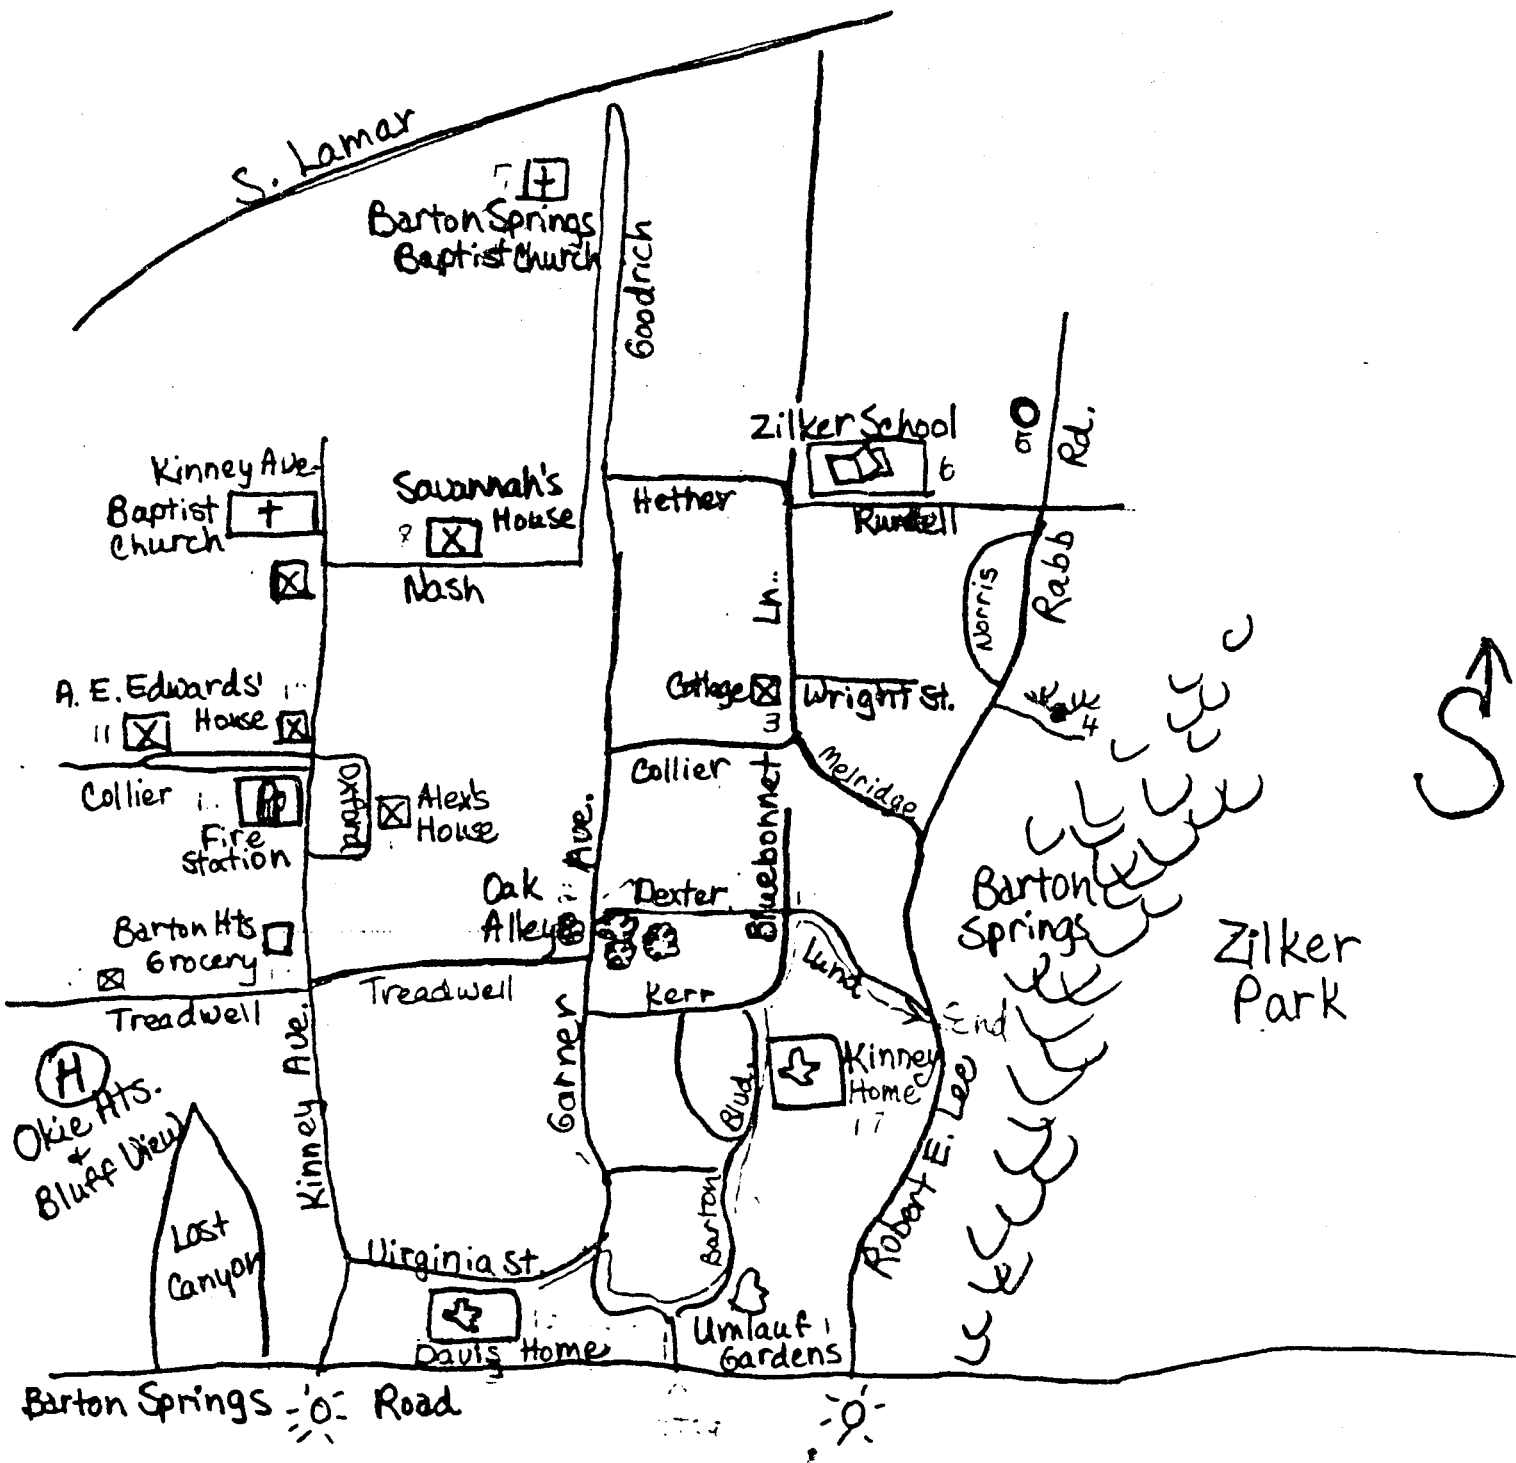 S. Lamar
7
Barton Springs
Baptist Church
Goodrich
Zilker School
6
Rd.
Kinney Ave
Baptist
Church
Savannah's
House
Hether
Rundell
Nash
Ln.
Norris
Rabb
A. E. Edwards'
House
11
Cottage
3
Wright St.
4
S
Collier
Oxford
Alex's
House
Fire
Station
Collier
Melridge
Bluebonnet
Ave.
Oak
Alley
Dexter
Barton
Springs
Zilker
Park
Barton Hts
Grocery
Treadwell
Treadwell
Kerr
Lund
End
H
Okie Hts.
&
Bluff View
Kinney Ave.
Garner
Blvd.
Kinney
Home
17
Robert E. Lee
Lost
Canyon
Virginia St.
Barton
Davis Home
Umlauf
Gardens
Barton Springs Road